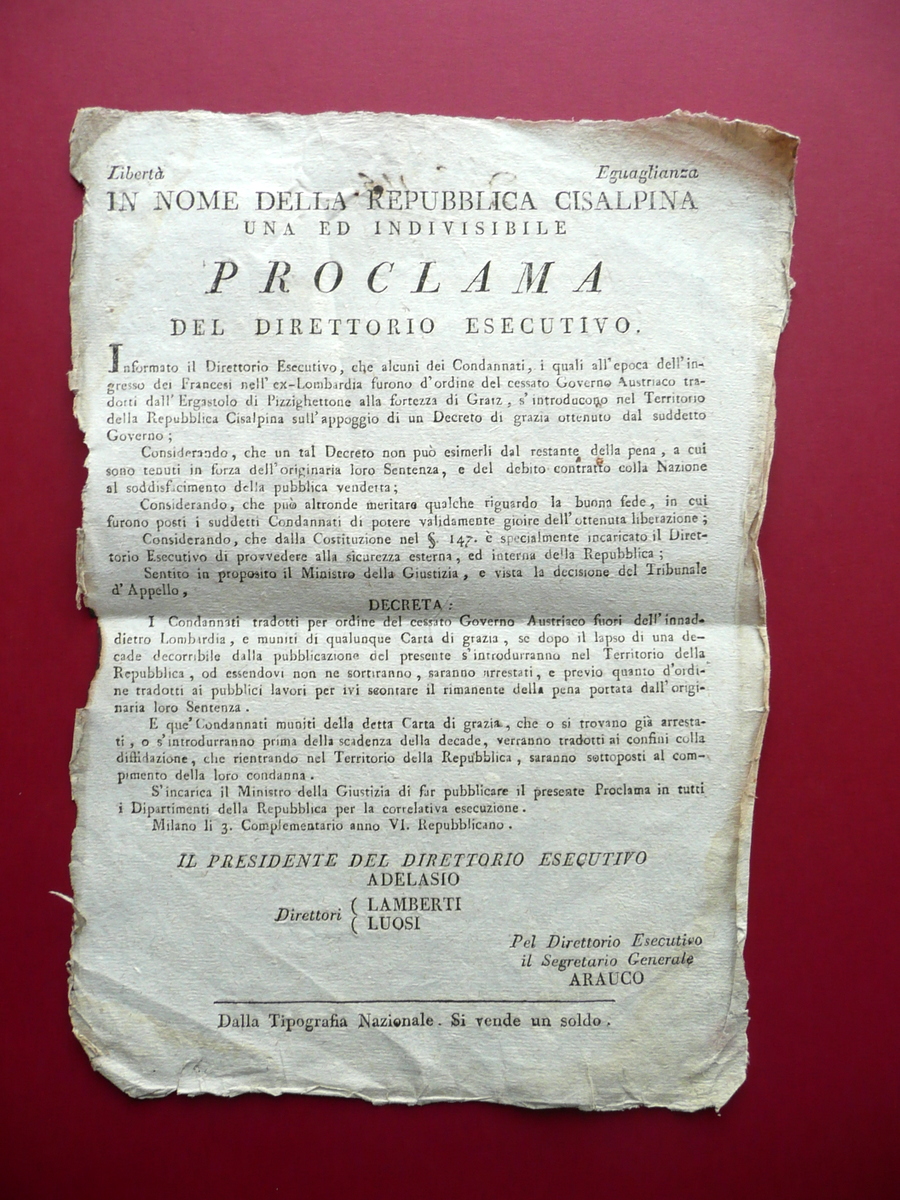 Libertà Eguaglianza
IN NOME DELLA REPUBBLICA CISALPINA
UNA ED INDIVISIBILE
PROCLAMA
DEL DIRETTORIO ESECUTIVO.
Informato il Direttorio Esecutivo, che alcuni dei Condannati, i quali all'epoca dell'in-
gresso dei Francesi nell'ex-Lombardia furono d'ordine del cessato Governo Austriaco tra-
dotti dall'Ergastolo di Pizzighettone alla fortezza di Gratz, s'introducono nel Territorio
della Repubblica Cisalpina sull'appoggio di un Decreto di grazia ottenuto dal suddetto
Governo;
Considerando, che un tal Decreto non può esimerli dal restante della pena, a cui
sono tenuti in forza dell'originaria loro Sentenza, e del debito contratto colla Nazione
al soddisfacimento della pubblica vendetta;
Considerando, che può altronde meritare qualche riguardo la buona fede, in cui
furono posti i suddetti Condannati di potere validamente gioire dell'ottenuta liberazione;
Considerando, che dalla Costituzione nel §. 147. è specialmente incaricato il Diret-
torio Esecutivo di provvedere alla sicurezza esterna, ed interna della Repubblica;
Sentito in proposito il Ministro della Giustizia, e vista la decisione del Tribunale
d'Appello,
DECRETA:
I Condannati tradotti per ordine del cessato Governo Austriaco fuori dell'innad-
dietro Lombardia, e muniti di qualunque Carta di grazia, se dopo il lapso di una de-
cade decorribile dalla pubblicazione del presente s'introdurranno nel Territorio della
Repubblica, od essendovi non ne sortiranno, saranno arrestati, e previo quanto d'ordi-
ne tradotti ai pubblici lavori per ivi scontare il rimanente della pena portata dall'origi-
naria loro Sentenza.
E que' Condannati muniti della detta Carta di grazia, che o si trovano già arresta-
ti, o s'introdurranno prima della scadenza della decade, verranno tradotti ai confini colla
diffidazione, che rientrando nel Territorio della Repubblica, saranno sottoposti al com-
pimento della loro condanna.
S'incarica il Ministro della Giustizia di far pubblicare il presente Proclama in tutti
i Dipartimenti della Repubblica per la correlativa esecuzione.
Milano li 3. Complementario anno VI. Repubblicano.
IL PRESIDENTE DEL DIRETTORIO ESECUTIVO
ADELASIO
Direttori ( LAMBERTI
( LUOSI
Pel Direttorio Esecutivo
il Segretario Generale
ARAUCO
Dalla Tipografia Nazionale. Si vende un soldo.